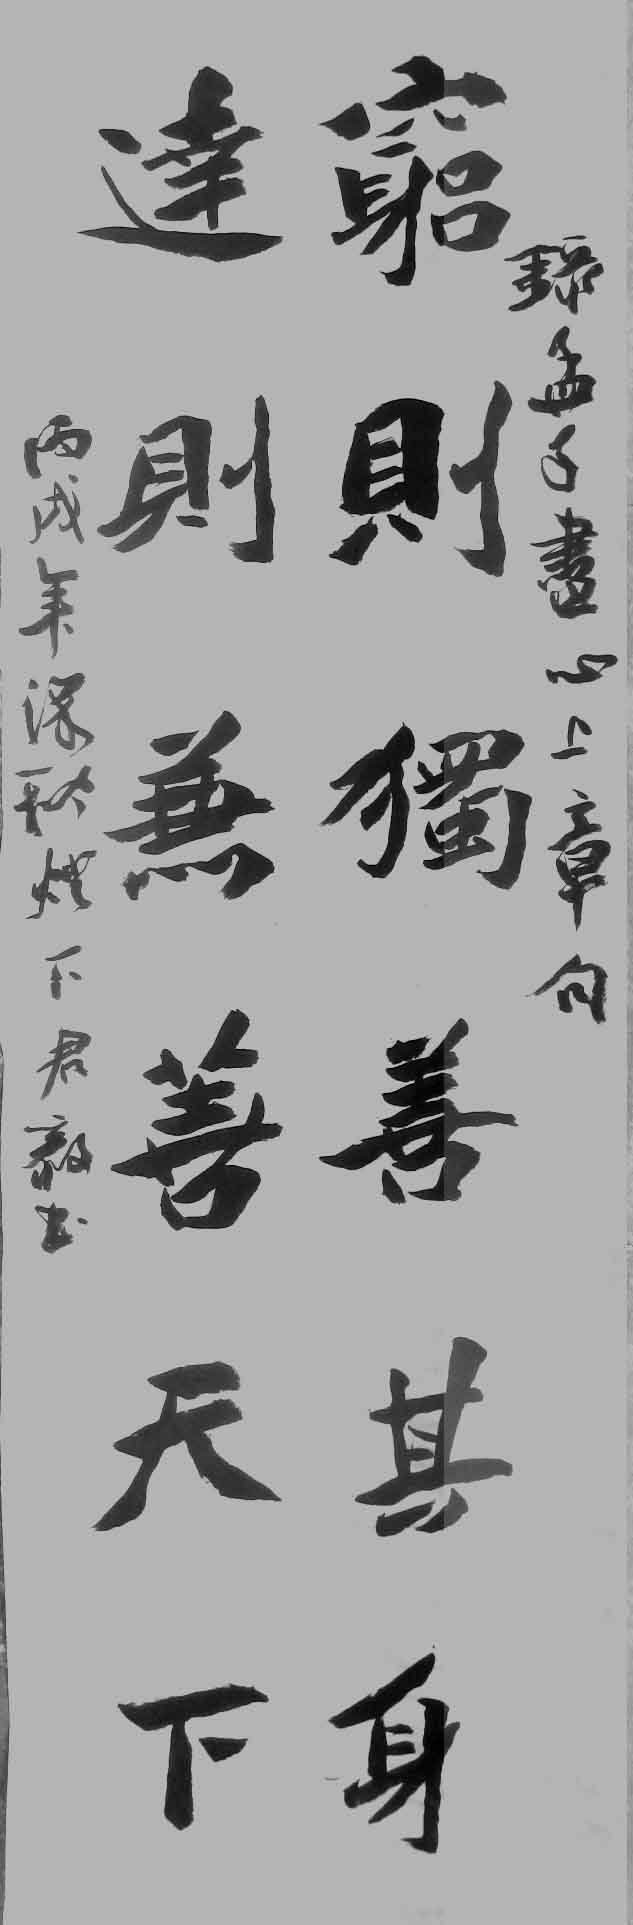 錄孟子盡心上章句
窮則獨善其身
達則兼善天下
丙戌年深秋燈下君毅書